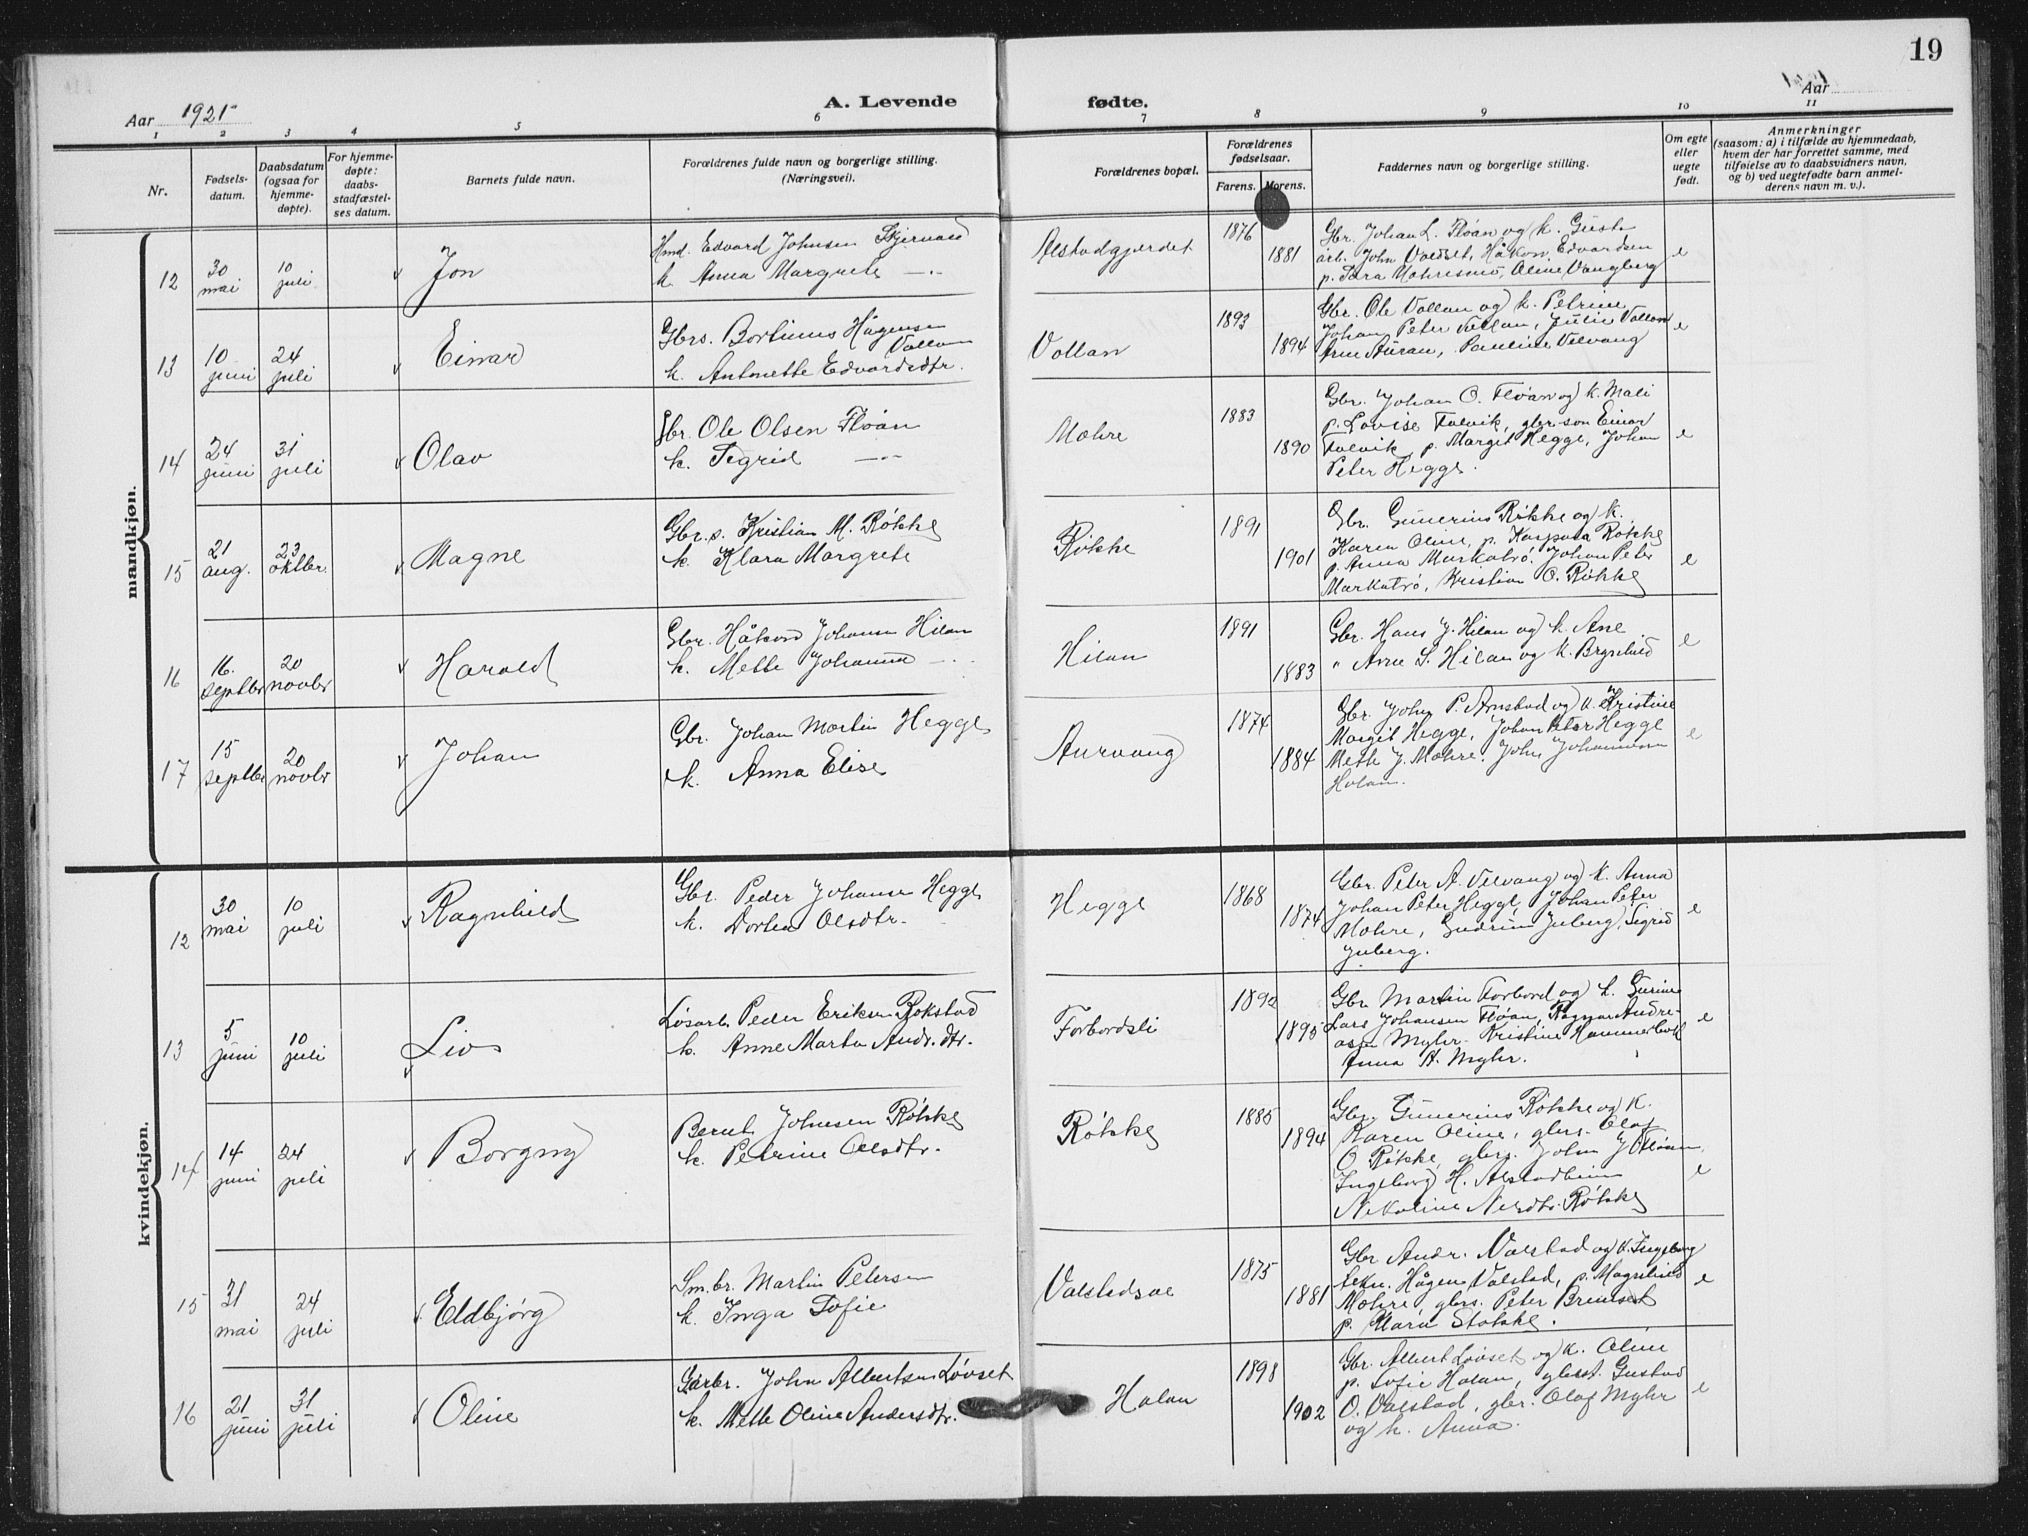 19
Aar 1921
A. Levende fødte.
Aar
1 2 3 4 5 6 7 8 9 10 11
Nr.
Fødsels-
datum.
Daabsdatum
(ogsaa for
hjemme-
døpte).
For hjemme-
døpte:
daabs-
stadfæstel-
ses datum.
Barnets fulde navn.
Forældrenes fulde navn og borgerlige stilling.
(Næringsvei).
Forældrenes bopæl.
Forældrenes
fødselsaar.
Farens. Morens.
Faddernes navn og borgerlige stilling.
Om egte
eller
uegte
født.
Anmerkninger
(saasom: a) i tilfælde av hjemmedaab,
hvem der har forrettet samme, med
tilføielse av to daabsvidners navn,
og b) ved uegtefødte barn anmel-
derens navn m. v.).
mandkjøn.
12
30
mai
10
juli
Jon
Hmd. Edvard Johnsen
k. Anna Margrete —"—
Alstadgjerdet
1876
1881
Gbr. Johan L. Fløan og k. Gusta
arb. John Valdset, Håkon Edvardsen
p. Sara Mohresmo, Oline Vangberg
e
13
10
juni
24
juli
Einar
Gbrs. Bortinus Hågensen
Vollan
k. Antonette Edvardsdtr.
Vollan
1893
1894
Gbr. Ole Vollan og k. Petrine
Johan Peter Vollan, Julie Vollan
Arne Auran, Pauline Velvang
e
14
24
juni
31
juli
Olav
Gbr. Ole Olsen Fløan
k. Sigrid —"—
Mohre
1883
1890
Gbr. Johan O. Fløan og k. Mali
p. Lovise Folvik, gbr.son Einar
Folvik, p. Margit Hegge, Johan
Peter Hegge.
e
15
21
aug.
23
oktbr.
Magne
Gbr.s. Kristian M. Røkke
k. Klara Margrete
Røkke
1891
1901
Gbr. Gunerius Røkke og k.
Karen Oline, p. Kaspara Røkke
p. Anna Markatrø. Johan Peter
Markatrø, Kristian O. Røkke
e
16
16.
septbr
20
novbr
Harald
Gbr. Håkon Johansen Hilan
k. Mette Johanna —"—
Hilan
1891
1883
Gbr. Hans J. Hilan og k. Ane
" Arne S. Hilan og k. Brynhild
e
17
15
septbr
20
novbr
Johan
Gbr. Johan Martin Hegge
k. Anna Elise
Aurvang
1874
1884
Gbr. John P. Arnstad og k. Kristine
Margit Hegge, Johan Peter Hegge
Meth J. Mohre. John Johannesen
Holan.
e
kvindekjøn.
12
30
mai
10
juli
Ragnhild
Gbr. Peder Johansen Hegge
k. Dortea Olsdtr.
Hegge
1868
1874
Gbr. Peter A. Velvang og k. Anna
Johan Peter Hegge, Johan Peter
Mohre, Gudrun Juberg, Sigrid
Juberg.
e
13
5
juni
10
juli
Liv
Løsarb. Peder Eriksen Rokstad
k. Anne Marta Andr.dtr.
Forbordsli
1892
1895
Gbr Martin Forbord og k. Gurine
Lars Johansen Fløan, Ragnar Andre-
asen Myhr. Kristine Hammerbak
Anna A. Myhr.
e
14
14
juni
24
juli
Borgny
Bernt Johnsen Røkke
k. Petrine Olsdtr.
Røkke
1885
1894
Gbr. Gunerius Røkke og k.
Karen Oline, gbrs. Olaf
O. Røkke, gbrs. John J. Fløan,
Ingeborg H. Alstadheim
Nikoline Nersdtr. Røkke
e
15
31
mai
24
juli
Eldbjørg
Sm.br. Martin Petersen
k. Inga Sofie
Valstadsve
1875
1881
Gbr Andr. Valstad og k. Ingeborg
Hågen Valstad, p. Magnhild
Mohre, gbrs. Peter Bremset
p. Mara Stokke.
e
16
21
juni
31
juli
Oline
Garbr. John Albertsen Løvset
k. Mette Oline Andersdtr.
Holan
1898
1902
Gbr. Albert Løvset og k. Oline
p. Sofie Holan, gbrst. Gustad
O. Valstad, gbr. Olaf Myhr
og k. Anna.
e